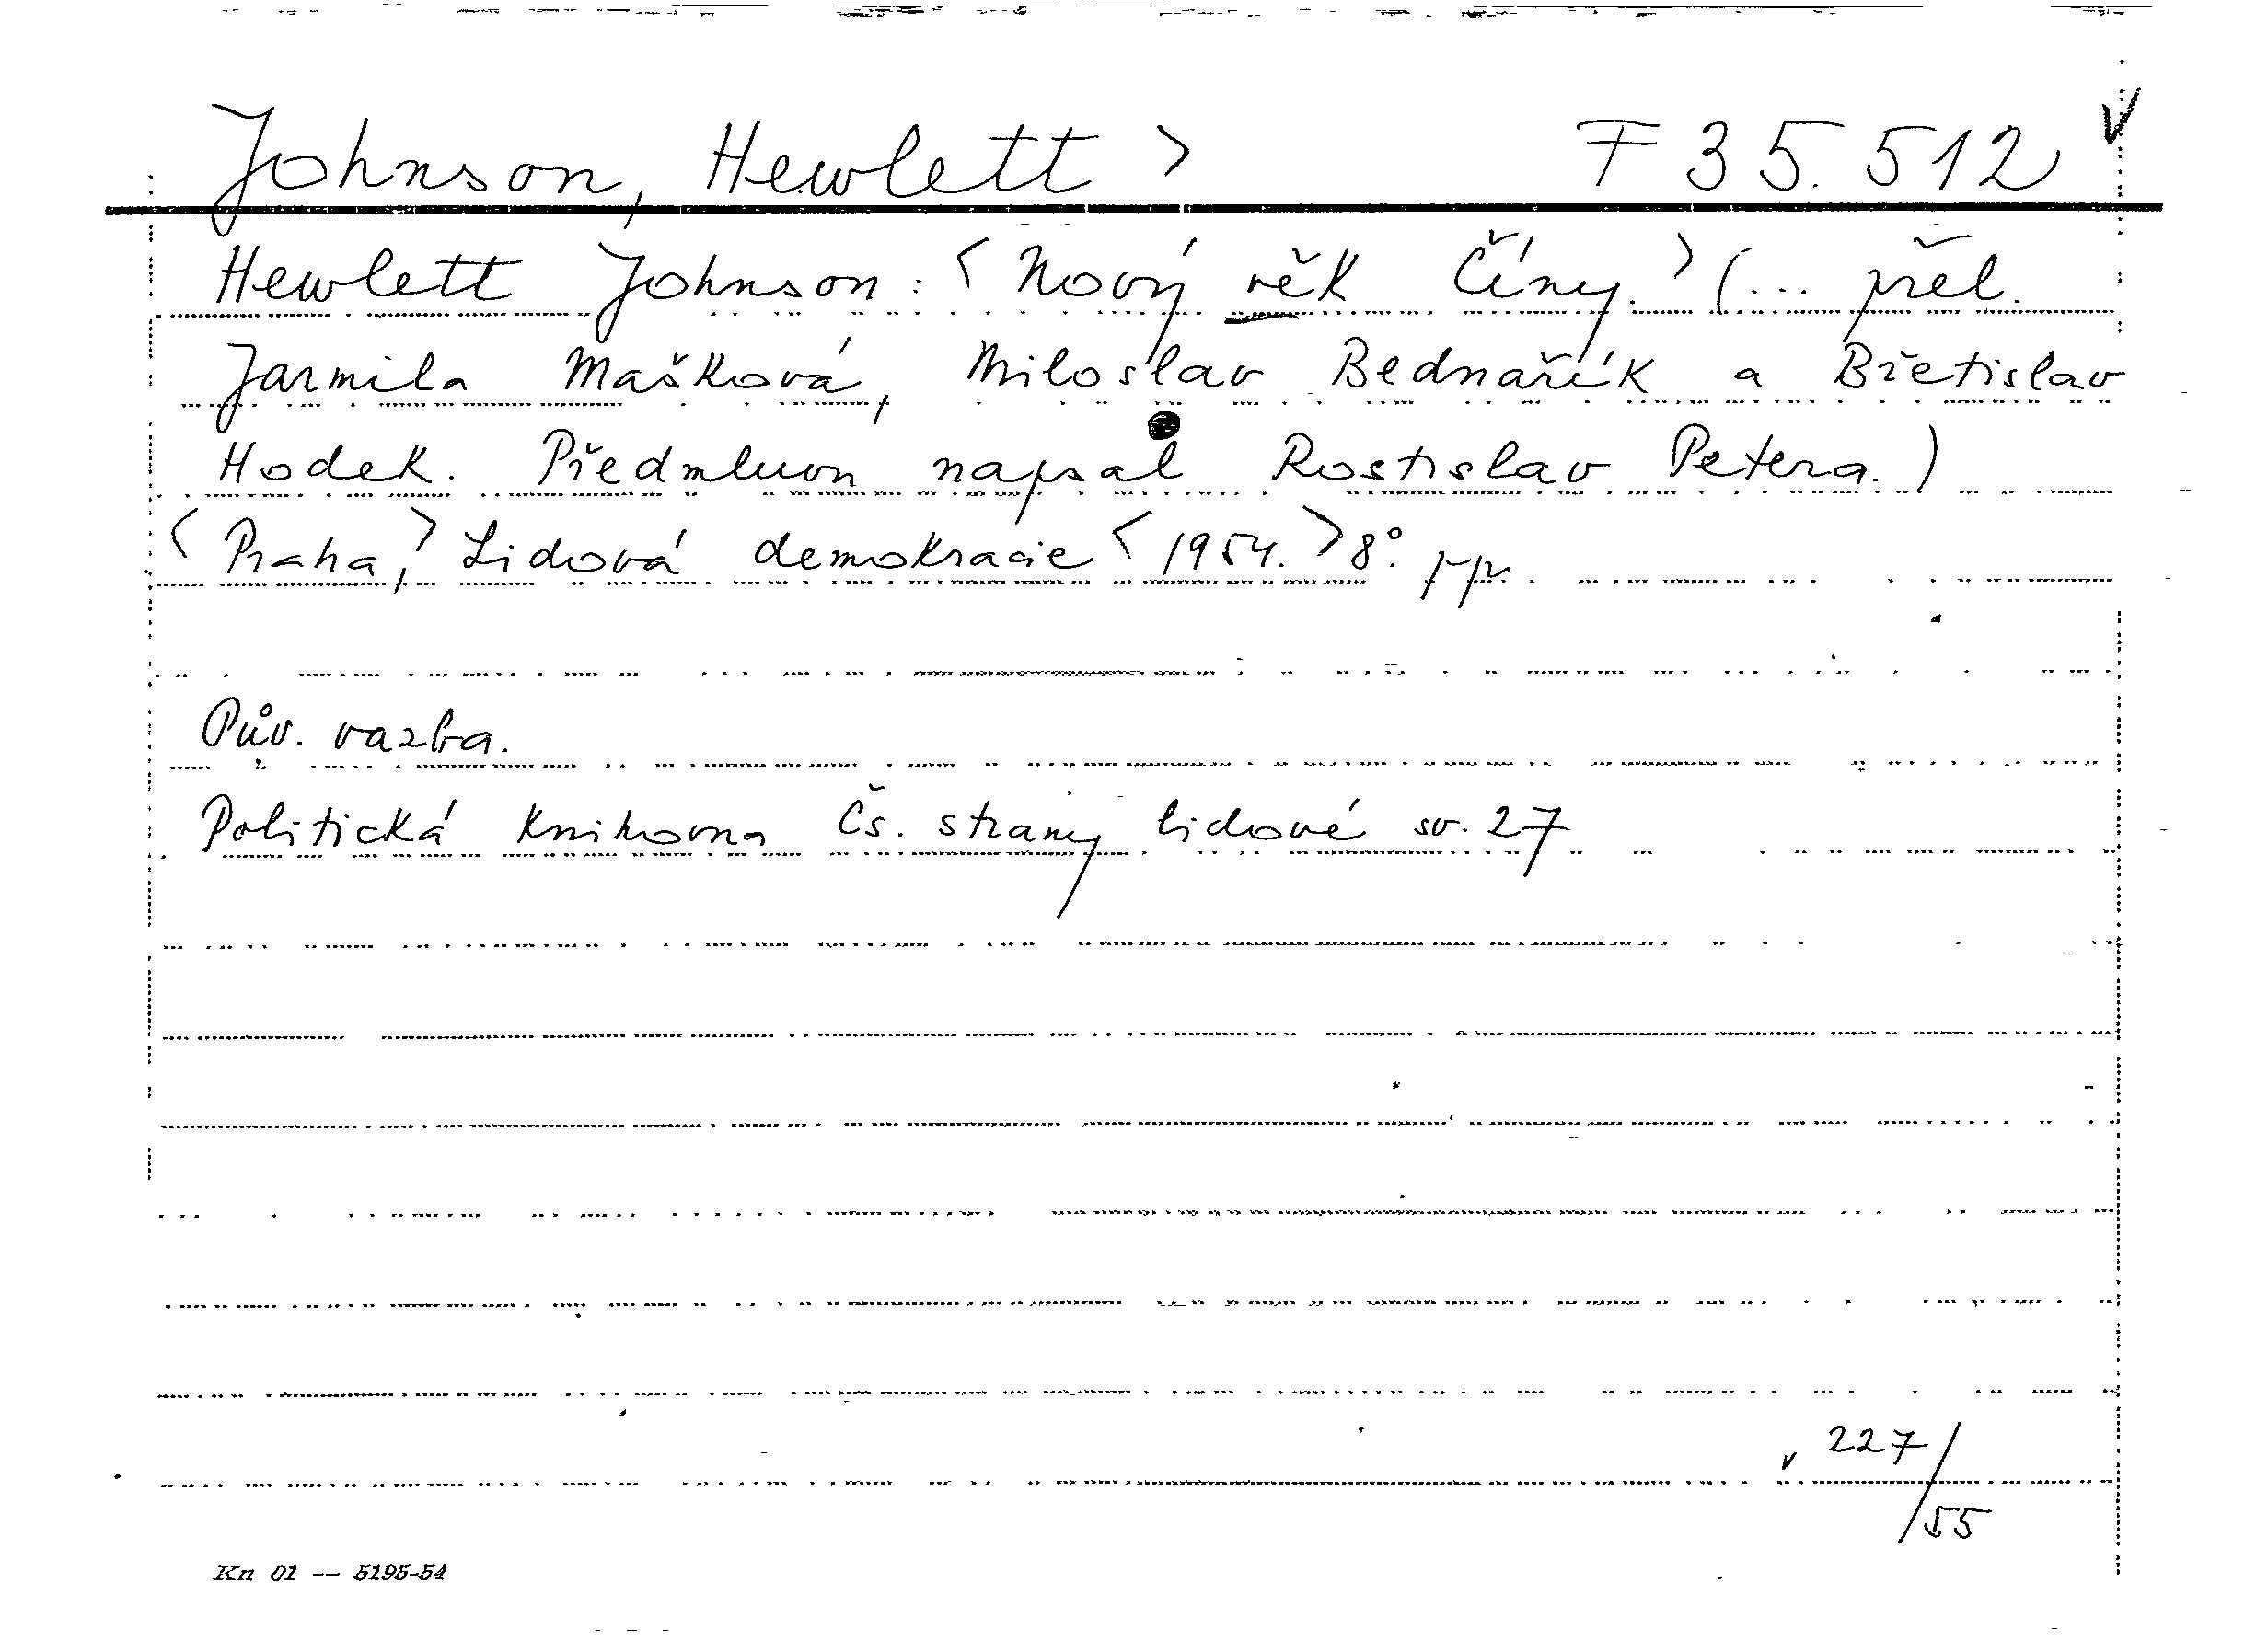 Johnson, Hewlett > F 35.512 v
Hewlett Johnson: < Nový věk Číny. > (... přel.
Jarmila Mašková, Miloslav Bednařík a Břetislav
Hodek. Předmluvu napsal Rostislav Petera.)
< Praha, > Lidová demokracie < 1954. > 8°.
Pův. vazba.
Politická knihovna Čs. strany lidové sv. 27
v 227/
55
Kn 01 -- 5195-54